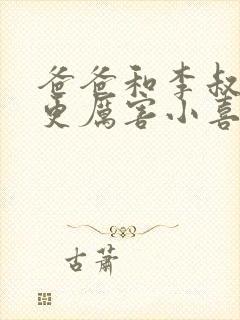 爸爸和李叔
更厉害小喜
古萧